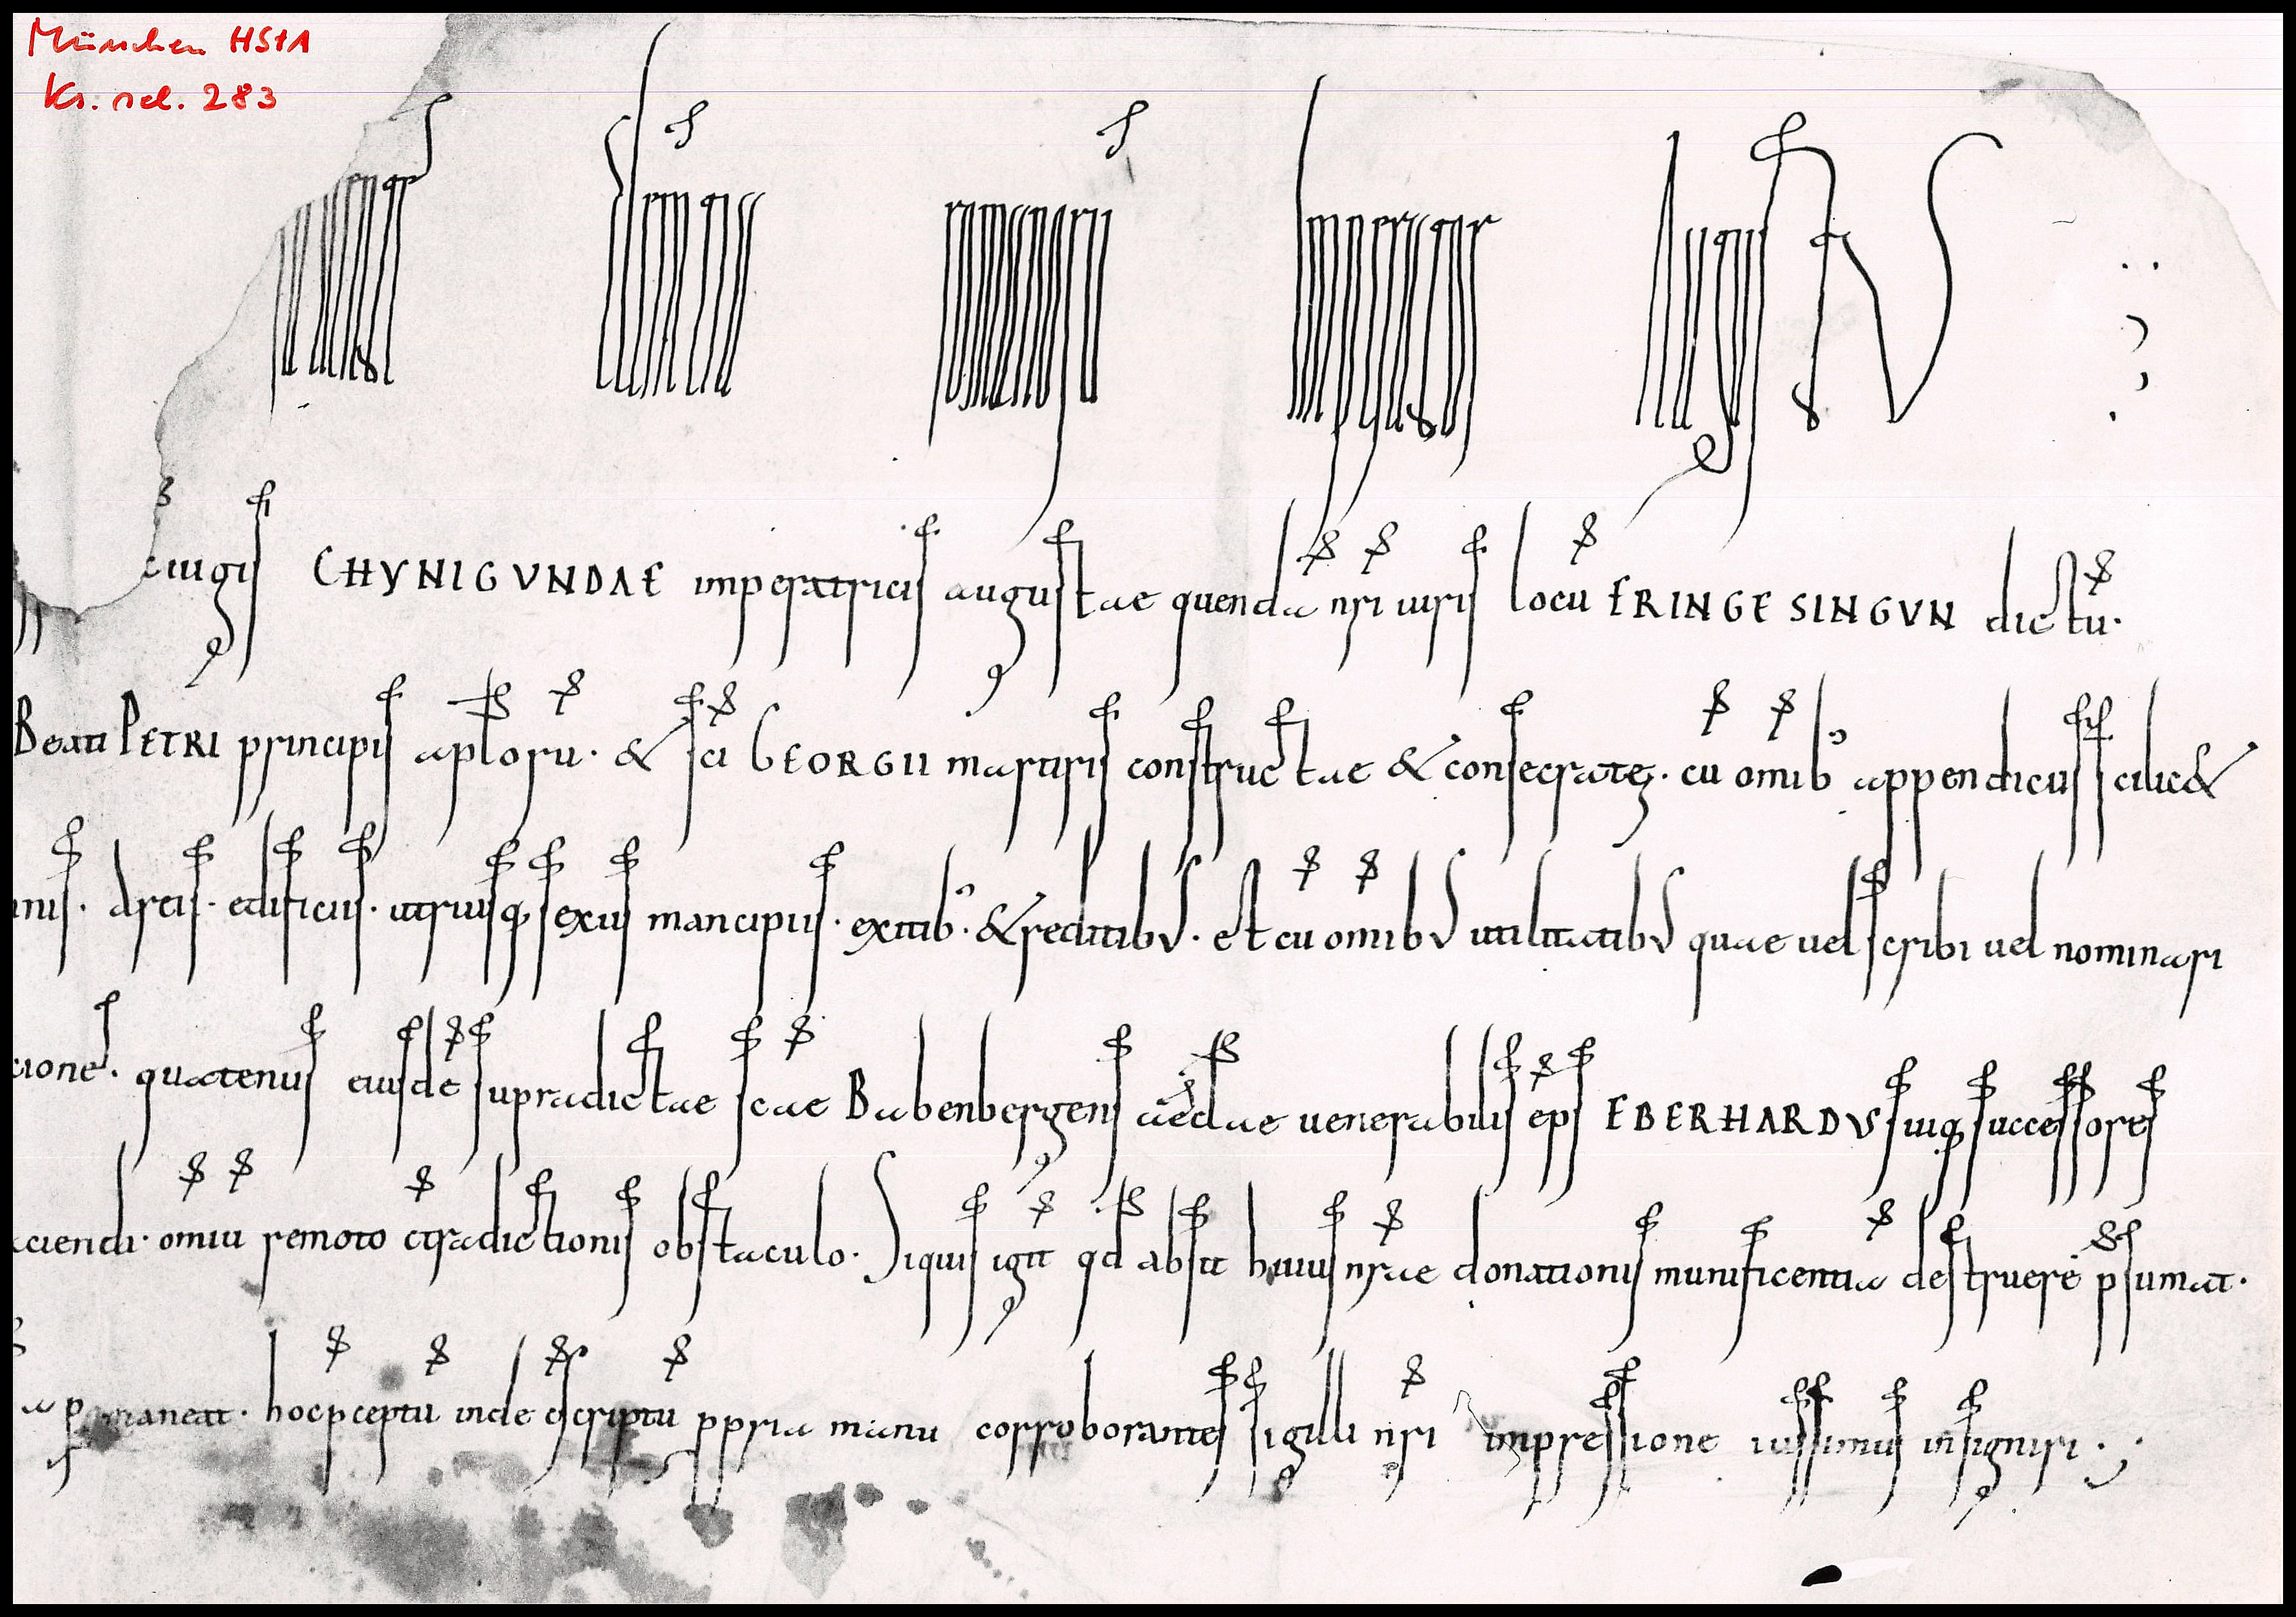 München HStA
Ks. sel. 283
clementia romanorum Imperator AugustuS
iugis CHYNIGVNDAE imperatricis augustae quenda nri iuris locu ERINGESINGVN dictu·
Beati PETRI principis aploru· & sci GEORGII martiris constructae & consecratę· cu omib' appendiciis scilic&
nis· areis· edificiis· utriusq; sexus mancipiis· exitib'· & reditibus· et cu omibus utilitatibus quae uel scribi uel nominari
cione· quatenus eiusde supradictae scae Babenbergensis aecclae uenerabilis eps EBERHARDVS suiq; successores
ciendi· omiu remoto ctradictionis obstaculo· Siquis igit qd absit huius nrae donationis munificentia destruere psumat·
a pmaneat· hoc pceptu inde cscriptu ppria manu corroborantes sigilli nri impressione iussimus insigniri·;